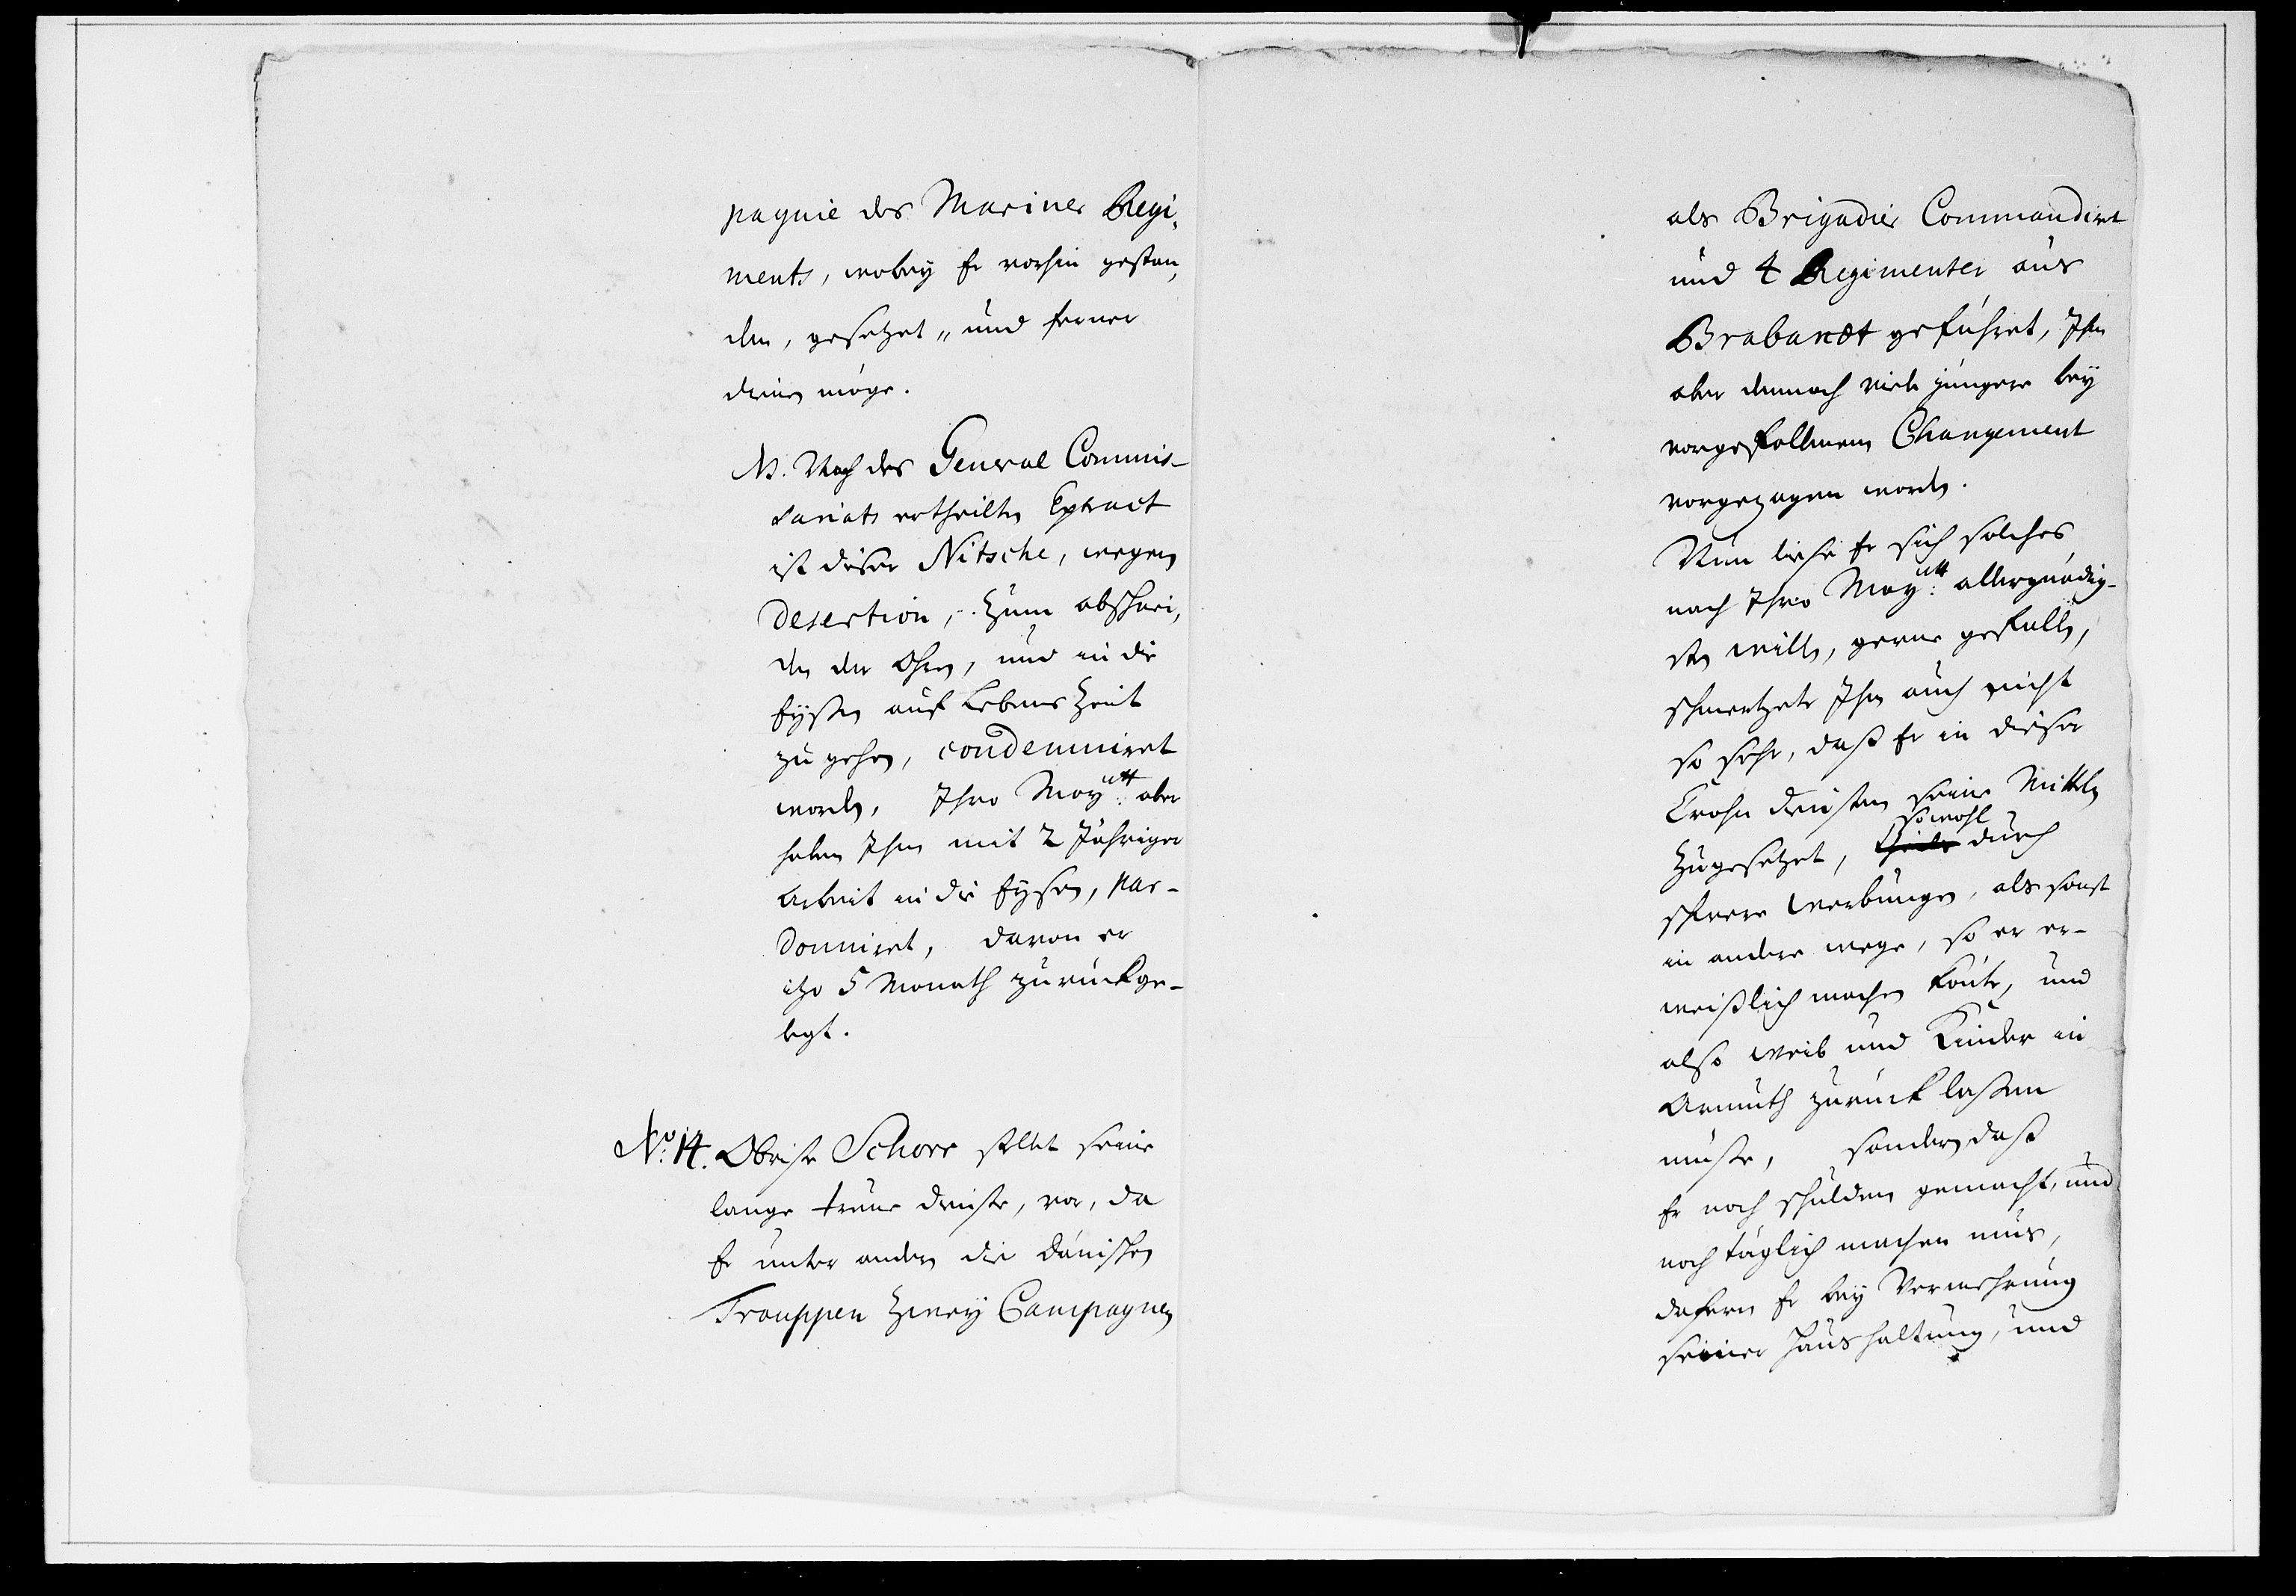 pagnie des Mariner Regi,
ments, wobey Er vorhin gestan,
den, gesetzet „ und ferner
dienen möge.
NB. Nach des General Commis-
sariats ertheilten Extract
ist dieser Nitsche, wegen
Desertion, zum abschnei,
den der Ohren, und in die
Eysen auf Lebens Zeit
zu gehen, condemniret
worden, Ihro Mayᵗᵗ: aber
haben Ihm mit 2 Jähriger
Arbeit in die Eysen, par-
donniret, davon er
itzo 5 Monath zurückge-
legt.
No: 14. Obrister Schorr stellet seine
lange treue Dienste, vor, da
Er unter andern die dänischen
Trouppen Zwey Campagnen
als Brigadier Commandiret
und 4 Regimenter aus
Brabandt geführet, Ihm
aber dennoch viele jüngere bey
vorgefallenem Changement
vorgezogen worden.
Nun ließe Er sich solches
nach Ihro Mayᵗᵗ: allergnädig-
sten willen, gerne gefallen,
schmertzete Ihm auch nicht
so sehr, daß Er in dieser
Crohn Diensten seine Mittel
sowohl
Zugesetzet, theils durch
schwere Werbungen, als sonst
in andere wege, so er er-
weißlich machen könte, und
also Weib und Kinder in
Armuth zurück laßen
müste, sondern daß
Er noch schulden gemacht, und
noch täglich machen mus,
dafern Er bey Vermehrung
seiner Haushaltung, und